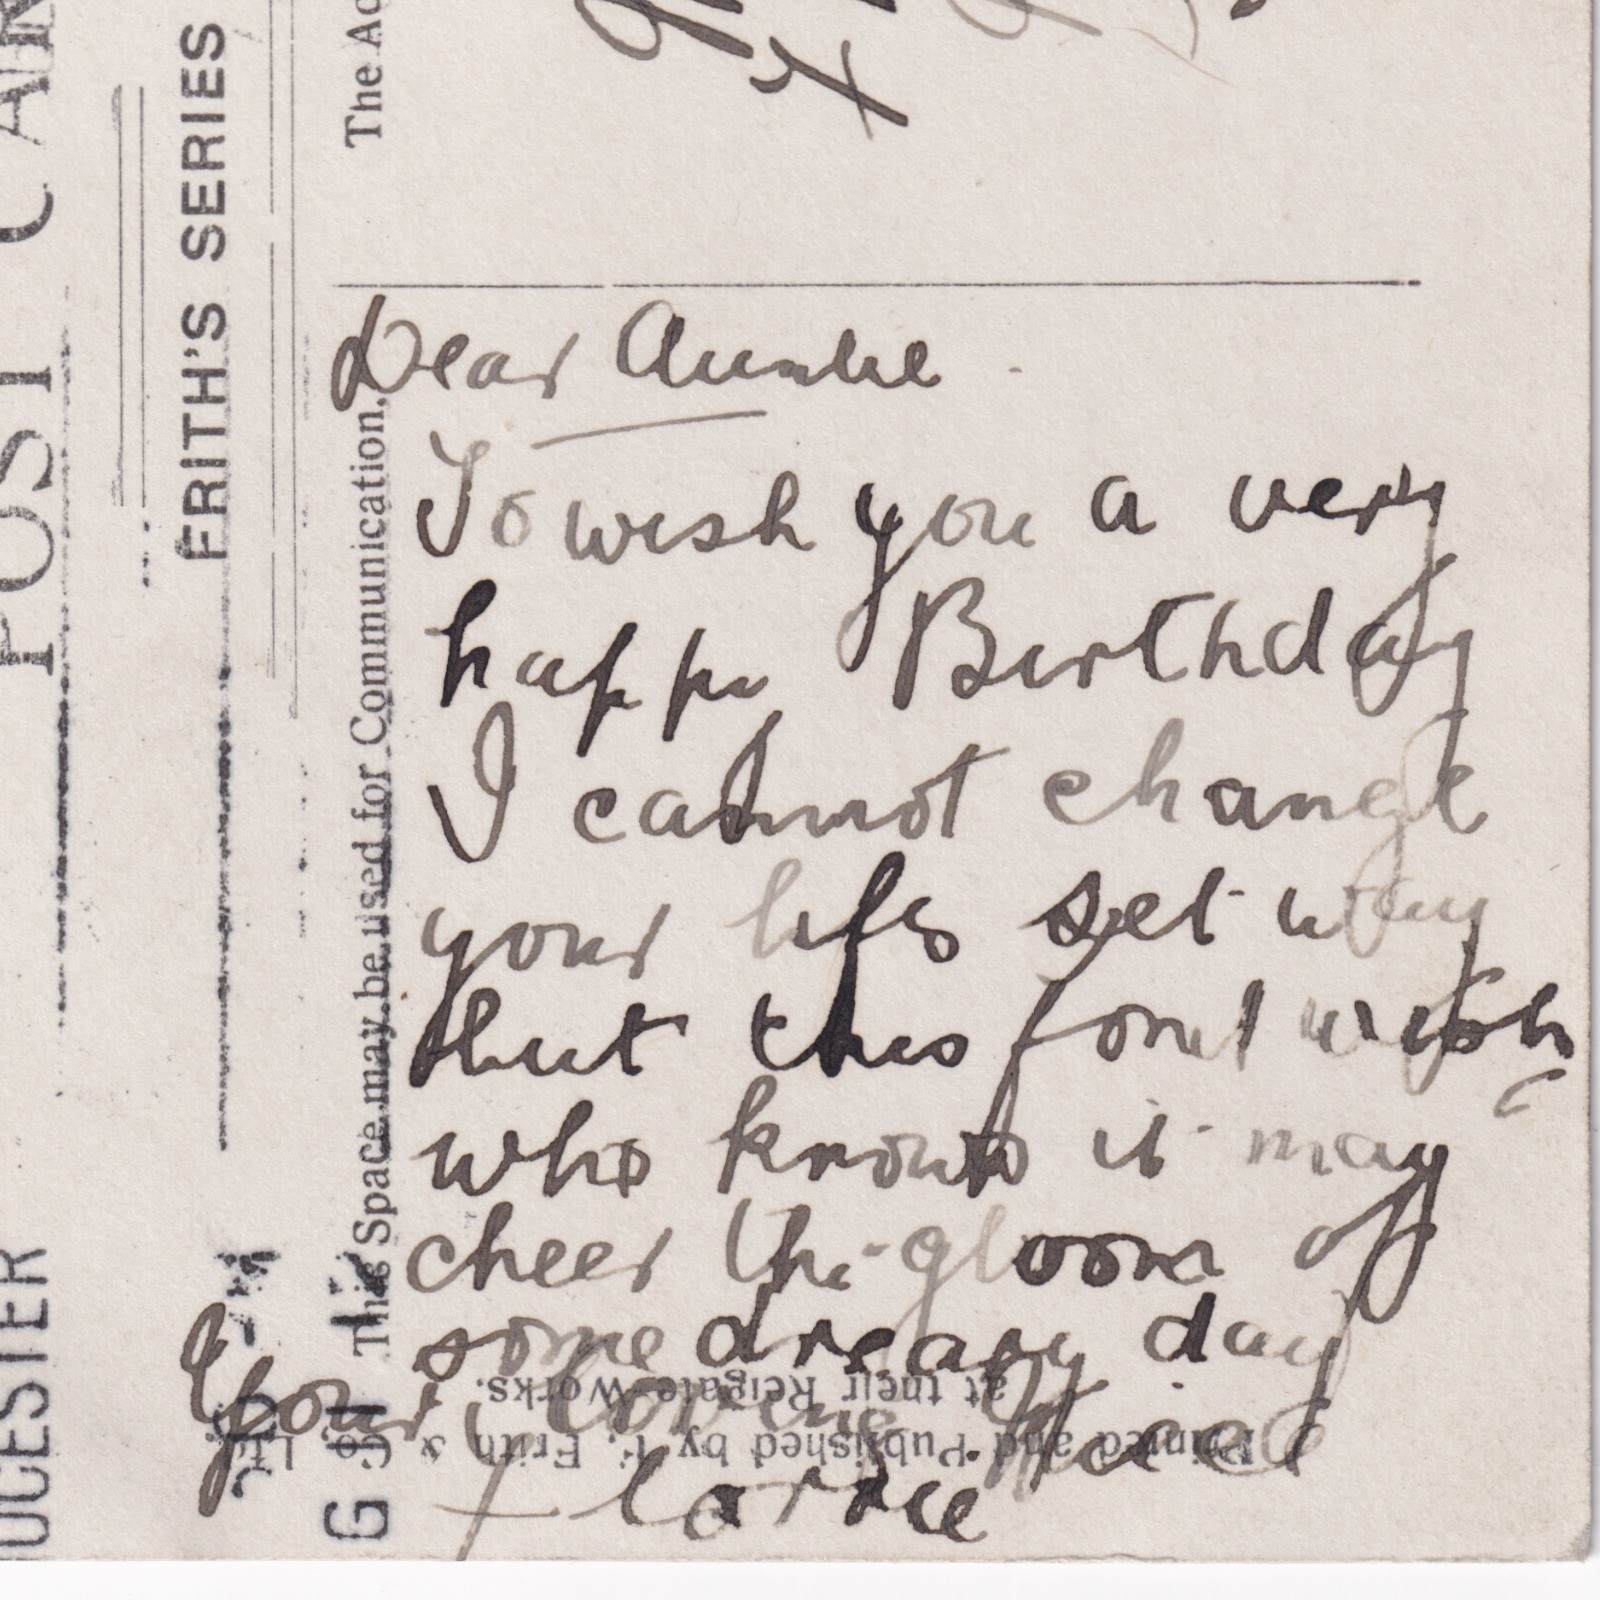 Dear Auntie.
To wish you a very
happy Birthday
I cannot change
your lifes set way
but this fond wish
who knows it may
cheer the gloom of
some dreary day
Your loving Niece
Florrie
POST CAR
FRITH'S SERIES
This Space may be used for Communication.
The Ad
Printed and Published by F. Frith & Co. Ltd.
at their Reigate Works.
UCESTER